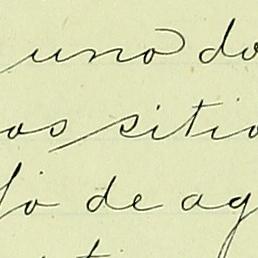 uno do
os sitio
jo de ag